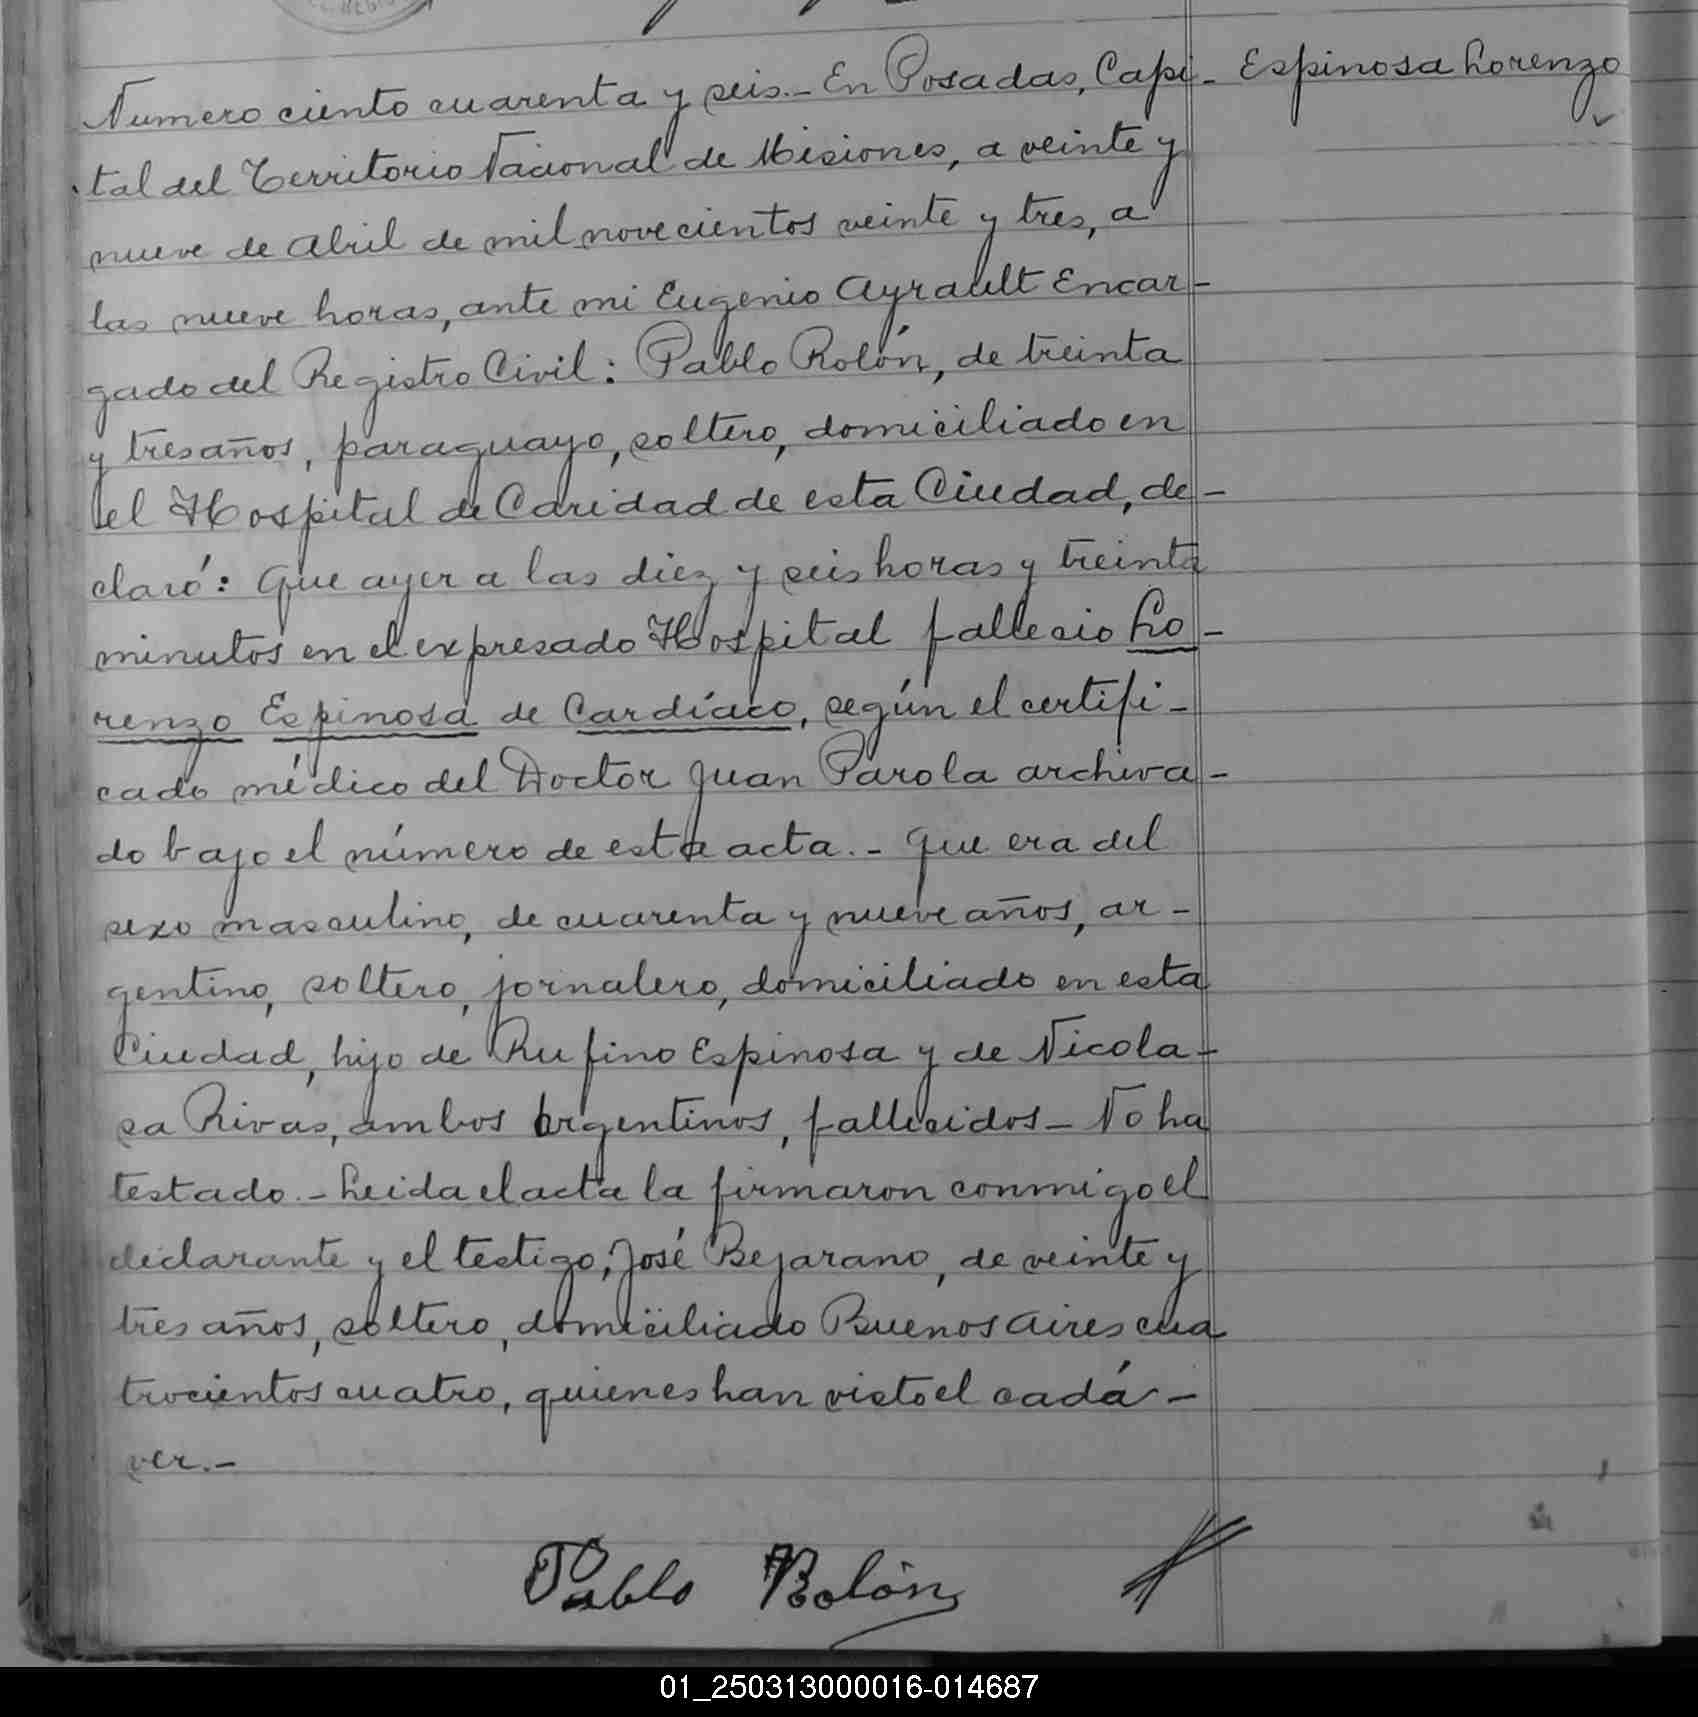 Numero ciento cuarenta y seis.- En Posadas, Capi- Espinosa Lorenzo
tal del Territorio Nacional de Misiones, a veinte y
nueve de Abril de mil novecientos veinte y tres, a
las nueve horas, ante mi Eugenio Ayrault Encar-
gado del Registro Civil: Pablo Rolón, de treinta
y tres años, paraguayo, soltero, domiciliado en
el Hospital de Caridad de esta Ciudad, de-
claró: Que ayer a las diez y seis horas y treinta
minutos en el expresado Hospital fallecio Lo-
renzo Espinosa de Cardíaco, según el certifi-
cado médico del Doctor Juan Parola archiva-
do bajo el número de esta acta.- Que era del
sexo masculino, de cuarenta y nueve años, ar-
gentino, soltero, jornalero, domiciliado en esta
Ciudad, hijo de Rufino Espinosa y de Nicola-
sa Rivas, ambos argentinos, fallecidos- No ha
testado.- Leida el acta la firmaron conmigo el
declarante y el testigo; José Bejarano, de veinte y
tres años, soltero, domiciliado Buenos Aires cua
trocientos cuatro, quienes han visto el cadá-
ver.-
Pablo Rolón
01_250313000016-014687